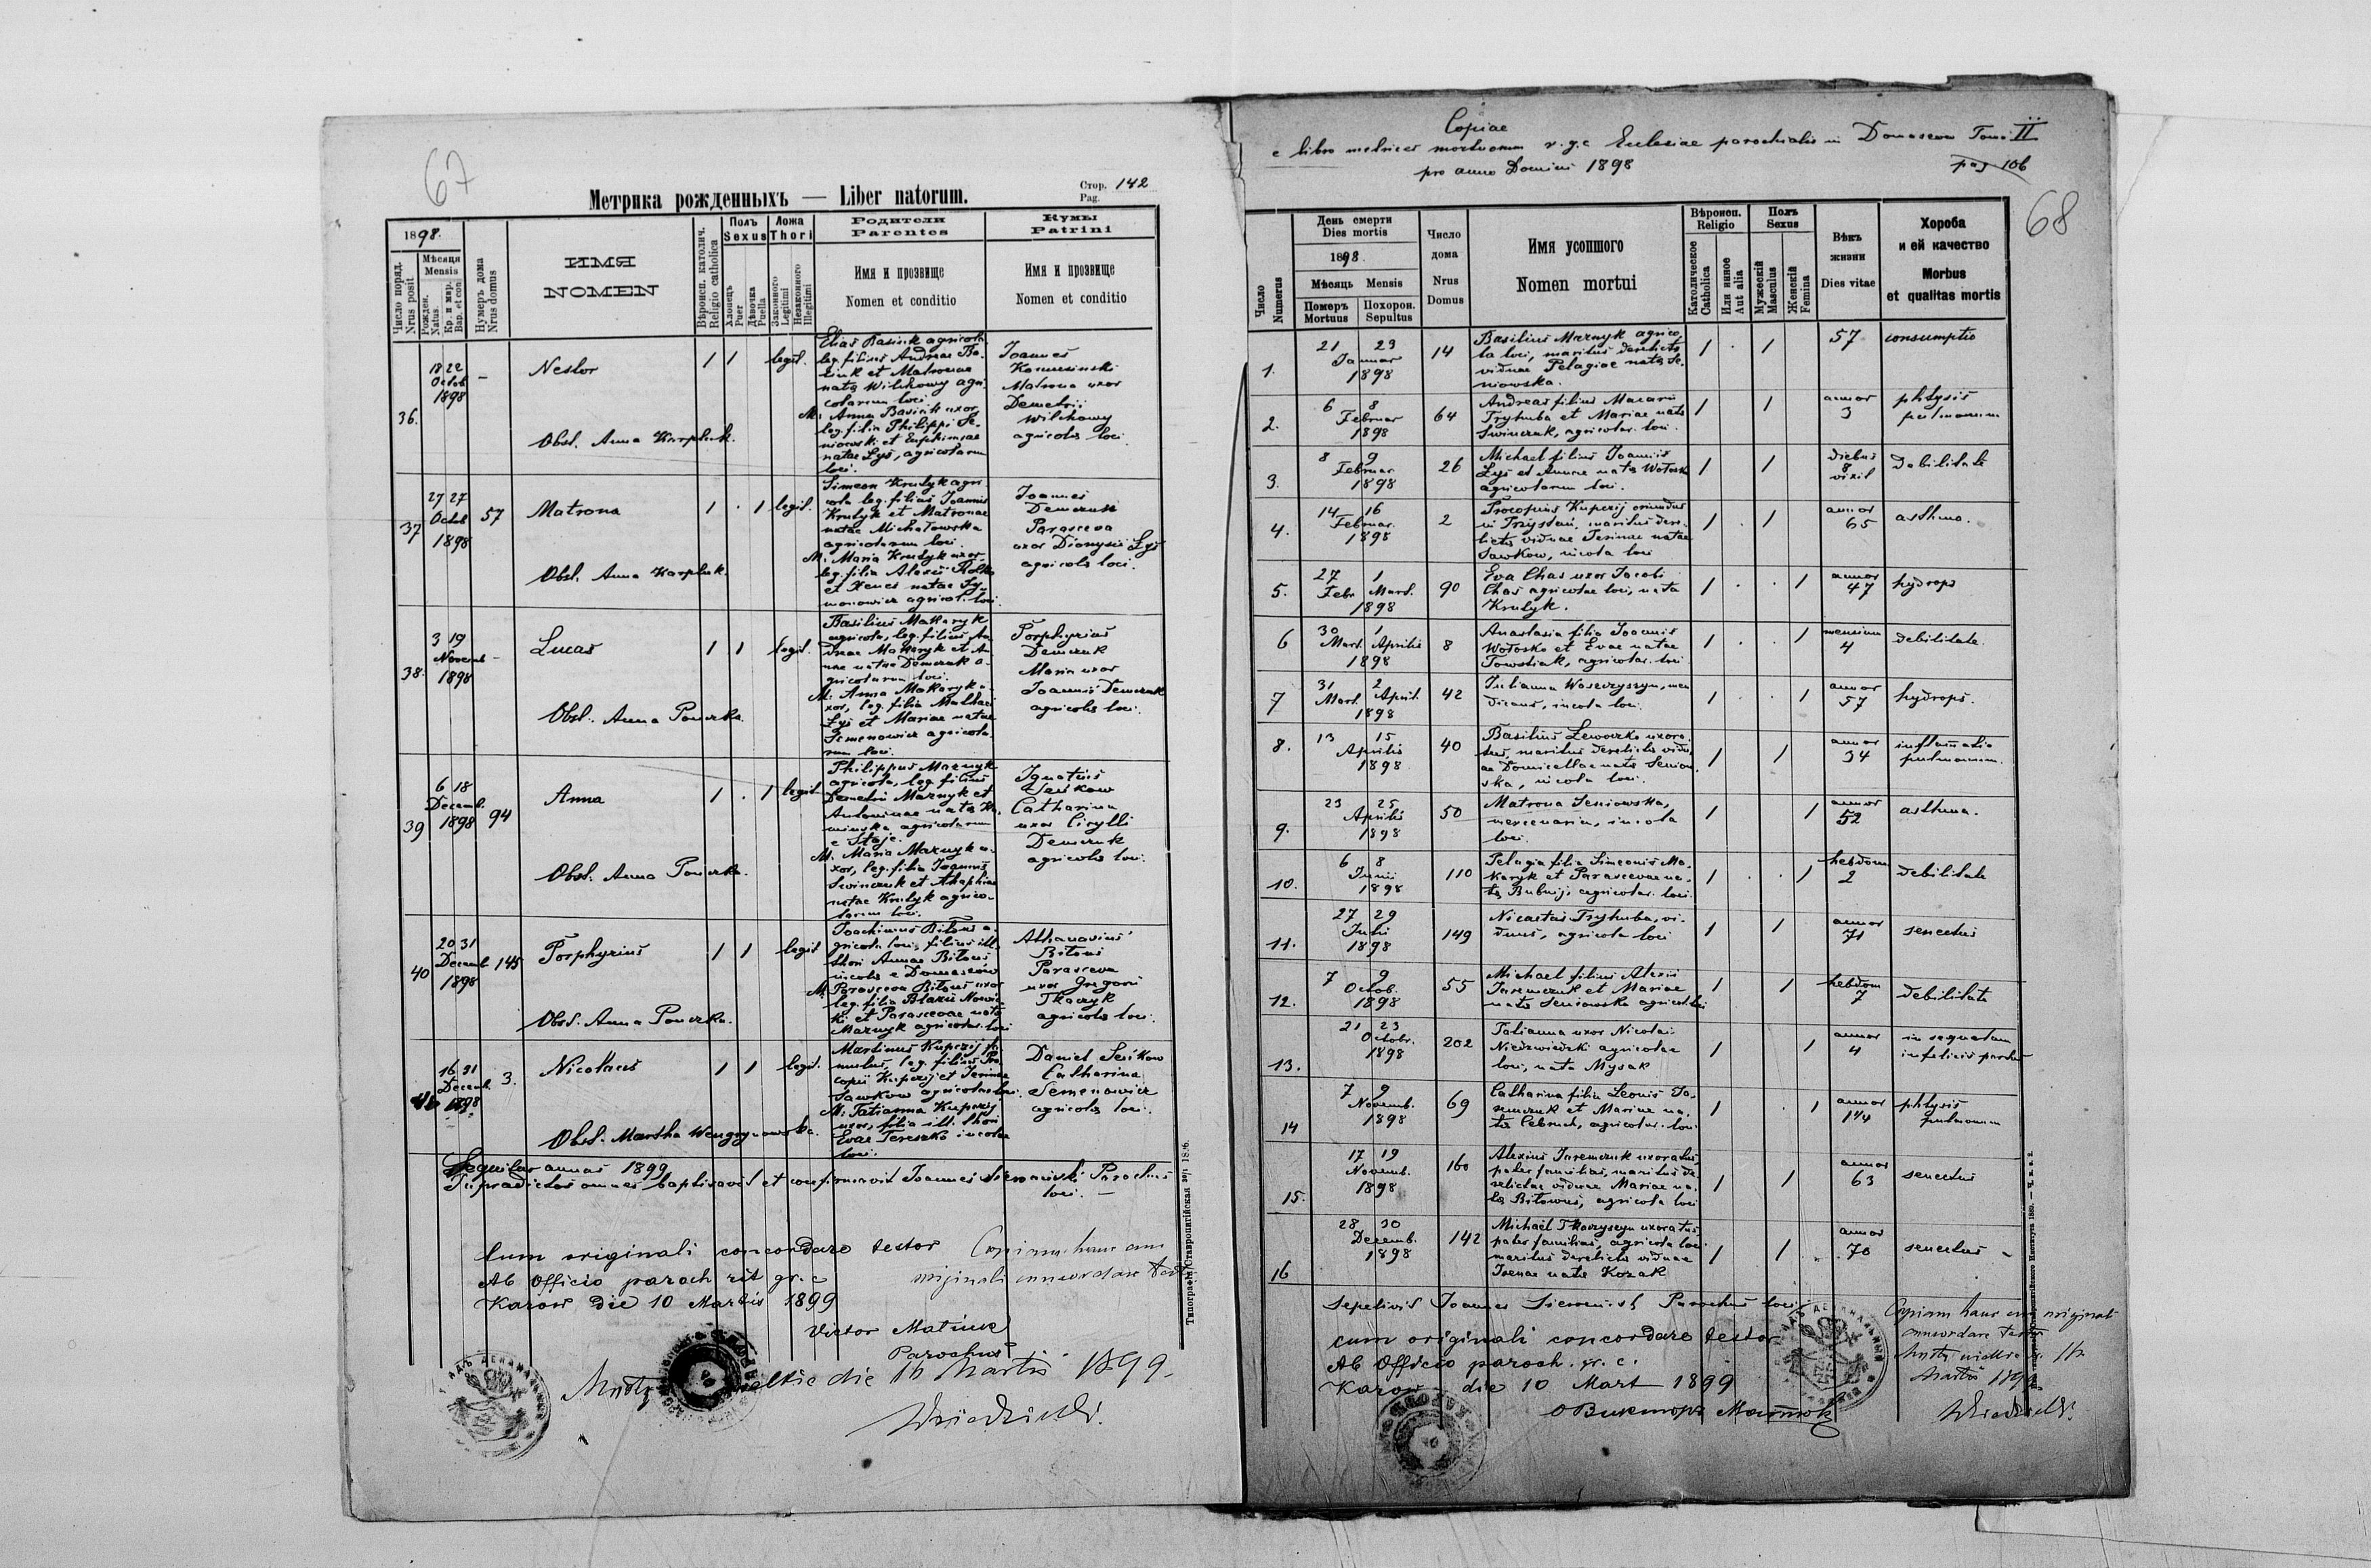 67
Метрика рожденныхъ — Liber natorum.
Стор. 142
Pag.
1898.
Число поряд.
Nrus posit
Мѣсяця
Mensis
Рожден.
Natus.
Кр. и мир.
Bap. et con.
Нумеръ дома
Nrus domus
ИМЯ
NOMEN
Вѣроисп. католич.
Religio catholica
Полъ
Sexus
Хлопець
Puer
Дѣвочка
Puella
Ложа
Thori
Законного
Legitimi
Незаконного
Illegitimi
Родители
Parentes
Имя и прозвище
Nomen et conditio
Кумы
Patrini
Имя и прозвище
Nomen et conditio
36.
18 22
Octob
1898
-
Nestor
1 1
legit.
Elias Basiuk agricola
leg. filius Andreae Ba-
siuk et Matronae
natae Wilchowy agri-
colarum loci
M. Anna Basiuk uxor,
leg. filia Philippi Se-
niowski et Euphimiae
natae Lys, agricolarum
loci.
Joannes
Matrona uxor
Demetrii
Wilchowy
agricolae loci.
Obst. Anna Karpluk.
37
27 27
Octob
1898
57
Matrona
1 . 1
legit.
Simeon Krulyk agri-
cola leg. filius Joannis
Krulyk et Matronae
natae Michałowska
agricolarum loci.
M. Maria Krulyk uxor,
leg. filia Alexii
et Xeniae natae Sy-
monowicz agricol. loci.
Joannes
Demczuk
Parasceva
uxor Dionysii Lys
agricolae loci.
Obst. Anna Karpluk.
38.
3 19
Novemb
1898
-
Lucas
1 1
legit.
Basilius Makaryk
agricola, leg. filius An-
dreae Makaryk et An-
nae natae Demczuk a-
gricolarum loci.
M. Anna Makaryk u-
xor, leg. filia Mathaei
Lys et Mariae natae
Semenowicz agricola-
rum loci.
Porphyrius
Demczuk
Maria uxor
Joannis Demczuk
agricolae loci.
Obst. Anna Ponczka.
39
6 18
Decemb.
1898
94
Anna
1 . 1
legit.
Philippus Maznyk
agricola, leg. filius
Demetrii Maznyk et
Antoninae natae Ka-
minska agricolarum
e Staje.
M. Maria Maznyk u-
xor, leg. filia Joannis
Swinczuk et Ahaphiae
natae Krulyk agrico-
larum loci.
Ignatius
Senkow
Catharina
uxor Cirylli
Demczuk
agricolae loci.
Obst. Anna Ponczka.
40
20 31
Decemb
1898
145
Porphyrius
1 1
legit
Joachimus Bitous a-
gricola loci, filius ill.
thori Annae Bitous
incolae e Domaszów
M. Parasceva Bitous uxor
leg. filia Blazii Nowic-
ki et Parascevae natae
Maznyk agricolar. loci
Athanasius
Bitous
Parasceva
uxor Gregorii
Tkaczyk
agricolae loci.
Obst. Anna Ponczka.
41
16 31
Decemb.
1898
3.
Nicolaus
1 1
legit.
Martinus Kupczij fa-
mulus, leg. filius Pro-
copii Kupczij et Irinae
Sawkow agricolar. loci.
M. Tatianna Kupczij
uxor, filia ill. thori
Evae Tereszko incolae
loci.
Daniel Senkow
Catharina
Semenowicz
agricolae loci.
Obst. Martha Wengrynowska.
Sequitur annus 1899
Supradictos omnes baptisavit et confirmavit Joannes Sieminski Parochus
loci. —
Cum originali concordare testor
Ab Officio paroch rit gr. c
Karow die 10 Martis 1899
Victor Matiuk
Parochus
Copiam hanc cum
originali concordare testor
Mosty wielkie die 16 Martis 1899.
Copiae
e libro metrices mortuorum r. g. c Eclesiae parochialis in Domaszow Tomi II
pro anno Domini 1898
pag 106
68
Число
Numerus
День смерти
Dies mortis
1898.
Мѣсяць Mensis
Померъ
Mortuus
Похорон.
Sepultus
Число
дома
Nrus
Domus
Имя усопшого
Nomen mortui
Вѣроисп.
Religio
Католическое
Catholica
Или инное
Aut alia
Полъ
Sexus
Мужескій
Masculus
Женскій
Femina
Вѣкъ
жизни
Dies vitae
Хороба
и ей качество
Morbus
et qualitas mortis
1.
21 23
Januar
1898
14
Basilius Maznyk agrico-
la loci, maritus derelictae
viduae Pelagiae natae Se-
niowska.
1 . 1
57
consumptio
2.
6 8
Februar
1898
64
Andreas filius Macarii
Tryhuba et Mariae natae
Swinczuk, agricolar. loci.
1 1
annor
3
phtysis
pulmonum
3.
8 9
Februar
1898
26
Michael filius Joannis
Lys et Annae natae Wołosko
agricolarum loci.
1 1
diebus
8
vixit
debilitate
4.
14 16
Februar.
1898
2
Procopius Kupczij oriundus
in Przystani, maritus dere-
lictae viduae Irinae natae
Sawkow, incola loci
1 . 1
annor
65
asthma.
5.
27 1
Febr Mart.
1898
90
Eva Chas uxor Jacobi
Chas agricolae loci, nata
Krulyk.
1 . . 1
annor
47
hydrops
6
30 1
Mart. Aprilis
1898
8
Anastasia filia Joannis
Wołosko et Evae natae
Towstiak, agricolar. loci
1 . 1
mensium
4
debilitate.
7
31 2
Mart. April.
1898
42
Julianna Wasczyszyn, men
dicans, incola loci.
1 . . 1
annor
57
hydrops.
8.
13 15
Aprilis
1898
40
Basilius Lewoczko uxora-
tus, maritus derelictae vidu-
ae Domicellae natae Seniow-
ska, incola loci.
1 1
annor
34
inflamatio
pulmonum.
9.
23 25
Aprilis
1898
50
Matrona Seniowska,
mercenaria, incola
loci
1 1
annor
52
asthma.
10.
6 8
Junii
1898
110
Pelagia filia Simeonis Ma-
karyk et Parascevae na-
tae Bubnij, agricolar. loci
1 . . 1
hebdom
2
debilitate
11.
27 29
Julii
1898
149
Nicaetas Tryhuba, vi-
duus, agricola loci
1 1
annor
71
senectus
12.
7 9
Octob.
1898
55
Michael filius Alexii
Juremczuk et Mariae
natae Seniowska agricol. loci
1 1
hebdom
7
debilitate
13.
21 23
Octobr.
1898
202
Tatianna uxor Nicolai
Niedzwiedzki agricolae
loci, nata Mysak
1 1
annor
4
in sequelam
infelicis partus
14
7 9
Novemb.
1898
69
Catharina filia Leonis Ja-
remczuk et Mariae na-
tae Cebruch, agricolar. loci
1 . 1
annor
phtysis
pulmonum
15.
17 19
Novemb.
1898
160
Alexius Juremczuk uxoratus,
pater familias, maritus de-
relictae viduae Mariae na-
tae Bitowus, agricola loci
1 1
annor
63
senectus
16
28 30
Decemb.
1898
142
Michael Tkaczyszyn uxoratus,
pater familias, agricola loci
maritus derelictae viduae
Irenae natae Kozak
1 1
annor
70
senectus -
Sepelivit Joannes Sieminski Parochus loci
cum originali concordare testor
Ab Officio paroch. gr. c.
Karow die 10 Mart 1899
о Викторъ Матюкъ
Copiam hanc cum originali
concordare testor
Mosty wielkie d. 16
Martis 1899